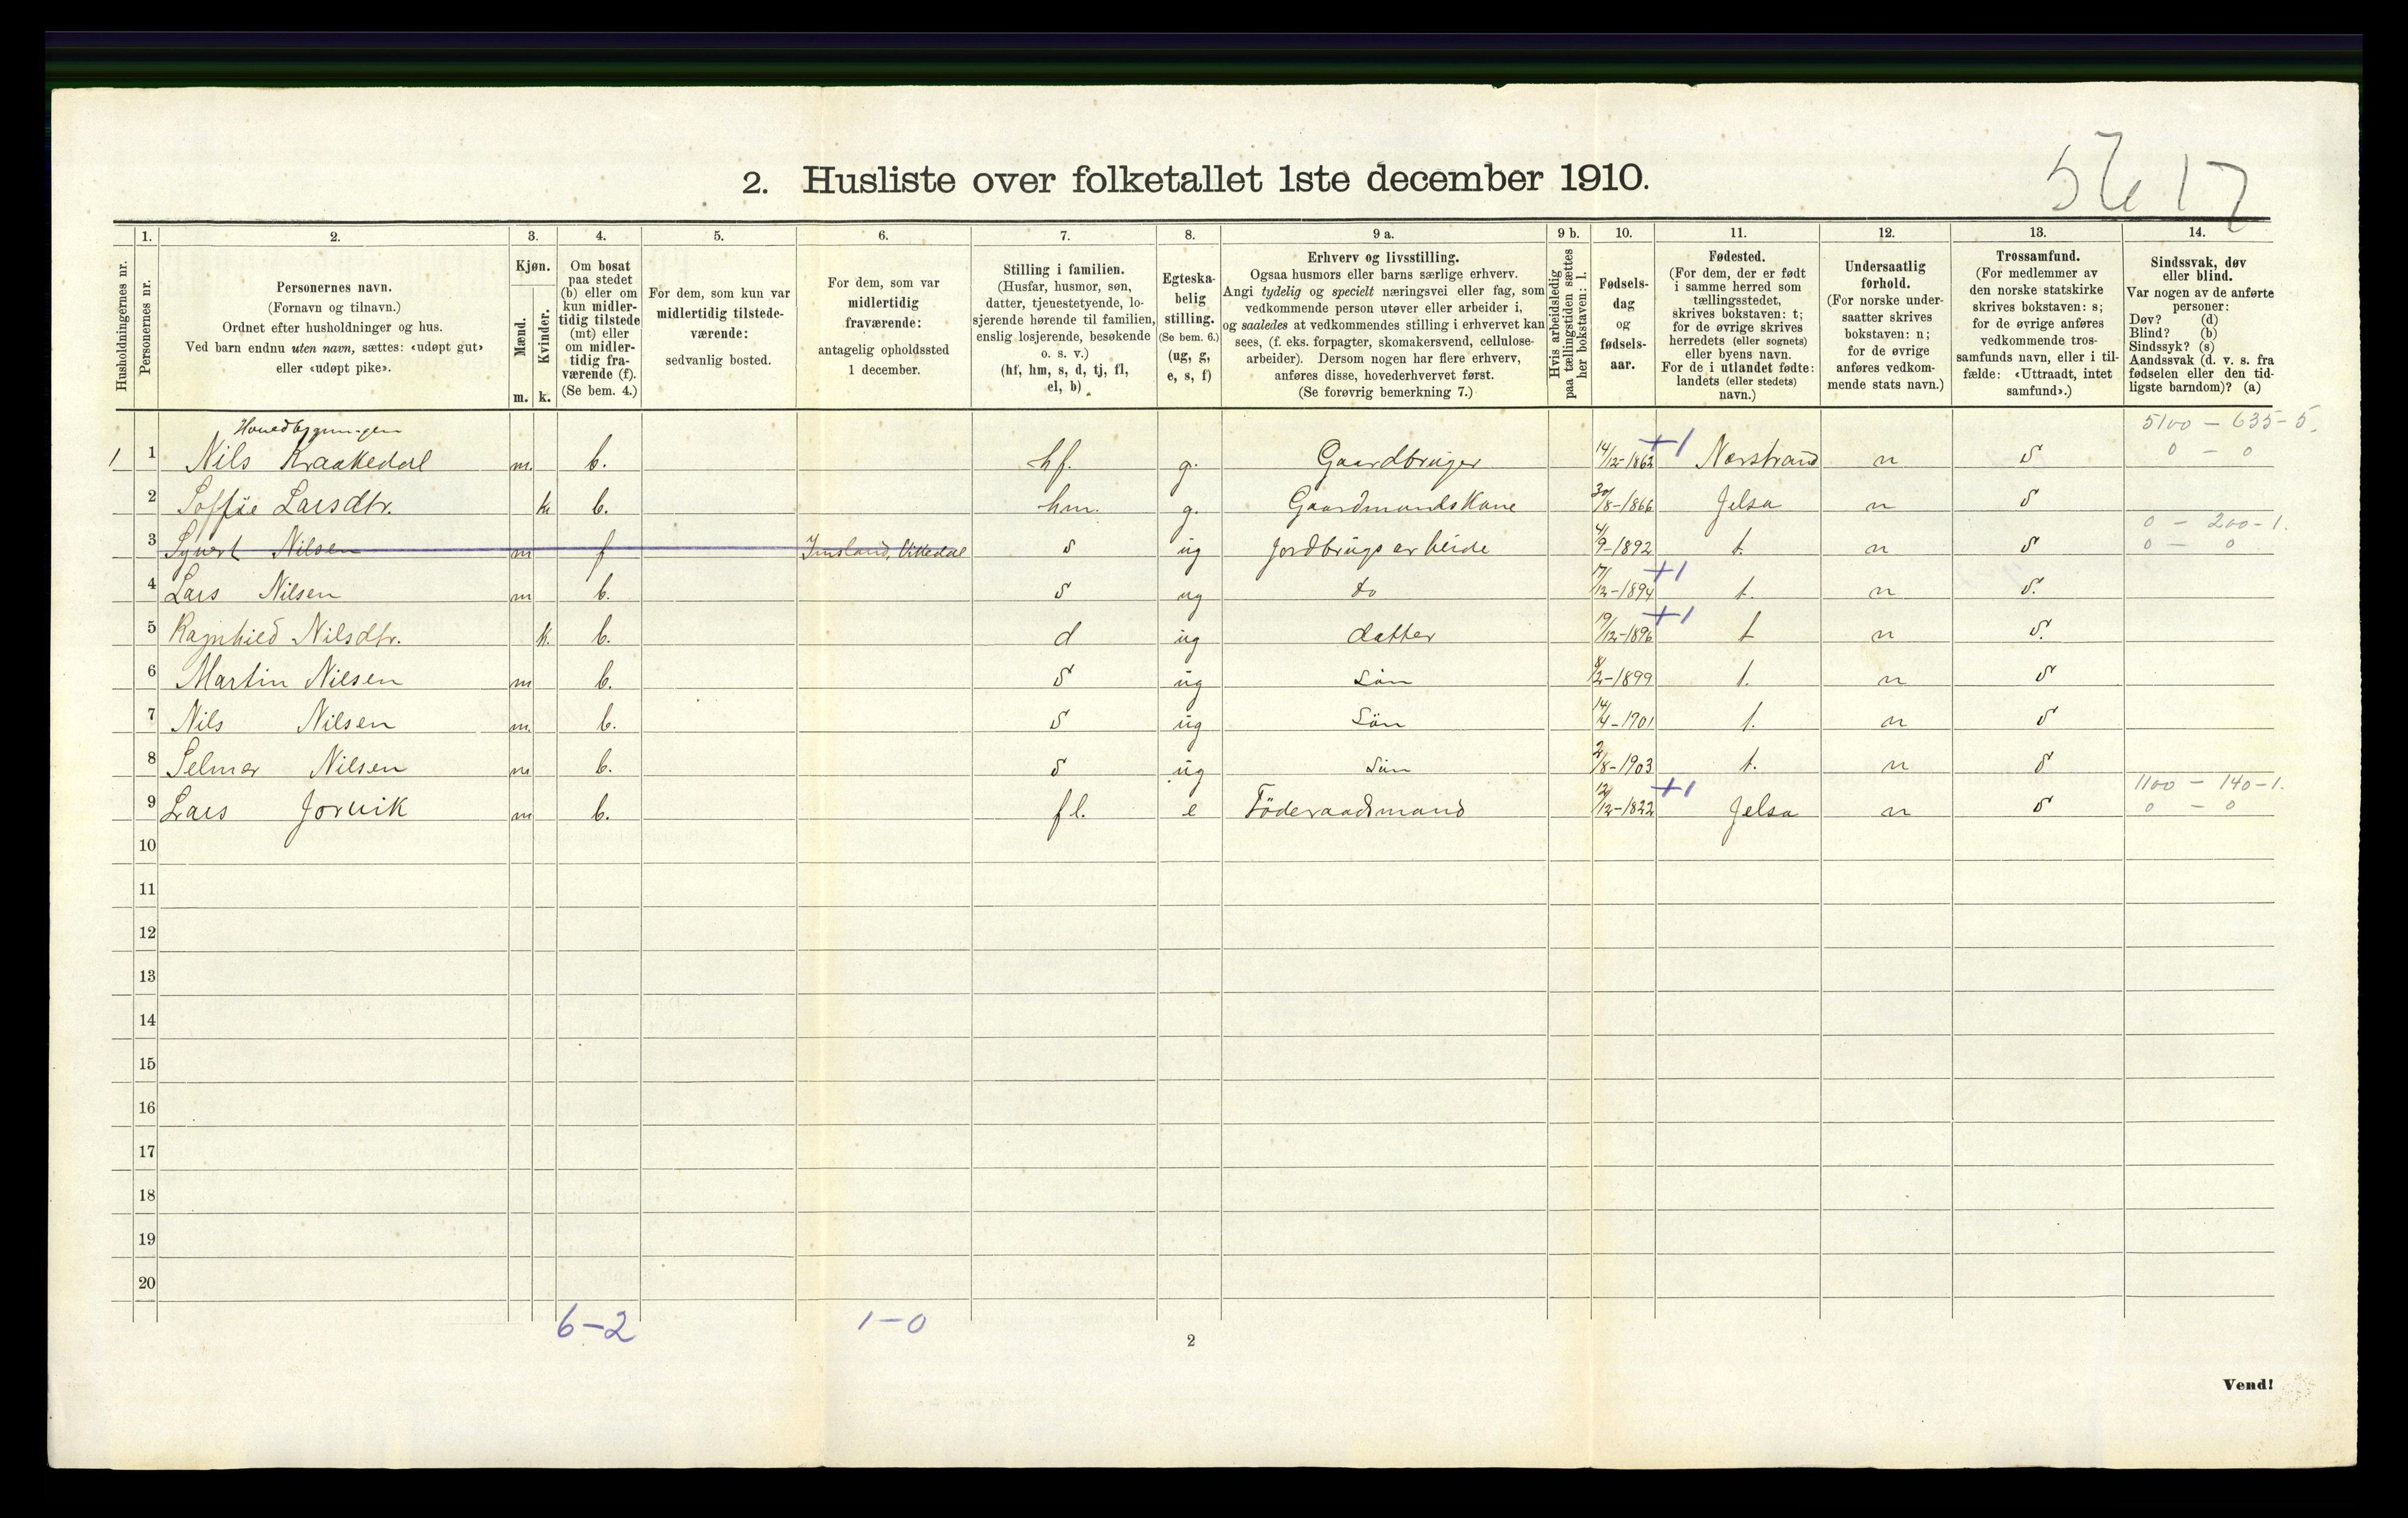 2. Husliste over folketallet 1ste december 1910.
Husholdningernes nr.
1.
Personernes nr.
2.
Personernes navn.
(Fornavn og tilnavn.)
Ordnet efter husholdninger og hus.
Ved barn endnu uten navn, sættes: «udøpt gut»
eller «udøpt pike».
3.
Kjøn.
Mænd.
m.
Kvinder.
k.
4.
Om bosat
paa stedet
(b) eller om
kun midler-
tidig tilstede
(mt) eller
om midler-
tidig fra-
værende (f).
(Se bem. 4.)
5.
For dem, som kun var
midlertidig tilstede-
værende:
sedvanlig bosted.
6.
For dem, som var
midlertidig
fraværende:
antagelig opholdssted
1 december.
7.
Stilling i familien.
(Husfar, husmor, søn,
datter, tjenestetyende, lo-
sjerende hørende til familien,
enslig losjerende, besøkende
o. s. v.)
(hf, hm, s, d, tj, fl,
el, b)
8.
Egteska-
belig
stilling.
(Se bem. 6.)
(ug, g,
e, s, f)
9 a.
Erhverv og livsstilling.
Ogsaa husmors eller barns særlige erhverv.
Angi tydelig og specielt næringsvei eller fag, som
vedkommende person utøver eller arbeider i,
og saaledes at vedkommendes stilling i erhvervet kan
sees, (f. eks. forpagter, skomakersvend, cellulose-
arbeider). Dersom nogen har flere erhverv,
anføres disse, hovederhvervet først.
(Se forøvrig bemerkning 7.)
9 b.
Hvis arbeidsledig
paa tællingstiden sættes
her bokstaven: l.
10.
Fødsels-
dag
og
fødsels-
aar.
11.
Fødested.
(For dem, der er født
i samme herred som
tællingsstedet,
skrives bokstaven: t;
for de øvrige skrives
herredets (eller sognets)
eller byens navn.
For de i utlandet fødte:
landets (eller stedets)
navn.)
12.
Undersaatlig
forhold.
(For norske under-
saatter skrives
bokstaven: n;
for de øvrige
anføres vedkom-
mende stats navn.)
13.
Trossamfund.
(For medlemmer av
den norske statskirke
skrives bokstaven: s;
for de øvrige anføres
vedkommende tros-
samfunds navn, eller i til-
fælde: «Uttraadt, intet
samfund».)
14.
Sindssvak, døv
eller blind.
Var nogen av de anførte
personer:
Døv? (d)
Blind? (b)
Sindssyk? (s)
Aandssvak (d. v. s. fra
fødselen eller den tid-
ligste barndom)? (a)
5100 - 635-5.
1 1 Nils Kraakedal m. b. hf. g. Gaardbruger 14/12-1862 +1 Nerstrand n s 0 - 0
2 Soffie Larsdtr. k b. hm. g. Gaardmandskone 30/8-1866 Jelsa n s
0 - 200-1.
3 Syvert Nilsen m f Imsland, Vikedal s ug Jordbrugsarbeide 4/9-1892 t. n s 0 - 0
4 Lars Nilsen m b. s ug do 17/12-1894 +1 t. n s.
5 Ragnhild Nilsdtr. k. b. d ug datter 19/12-1896 +1 t n s.
6 Martin Nilsen m b. s ug Sön 8/2-1899 t. n s
7 Nils Nilsen m. b. s ug Sön 14/4-1901 t. n s
8 Selmer Nilsen m b. s ug Sön 2/8-1903 t. n s
1100 - 140-1.
9 Lars Jorvik m b. fl. e Föderaadsmand 12/12-1822 +1 Jelsa n s 0 - 0
10
11
12
13
14
15
16
17
18
19
20
6-2 1-0
2
Vend!